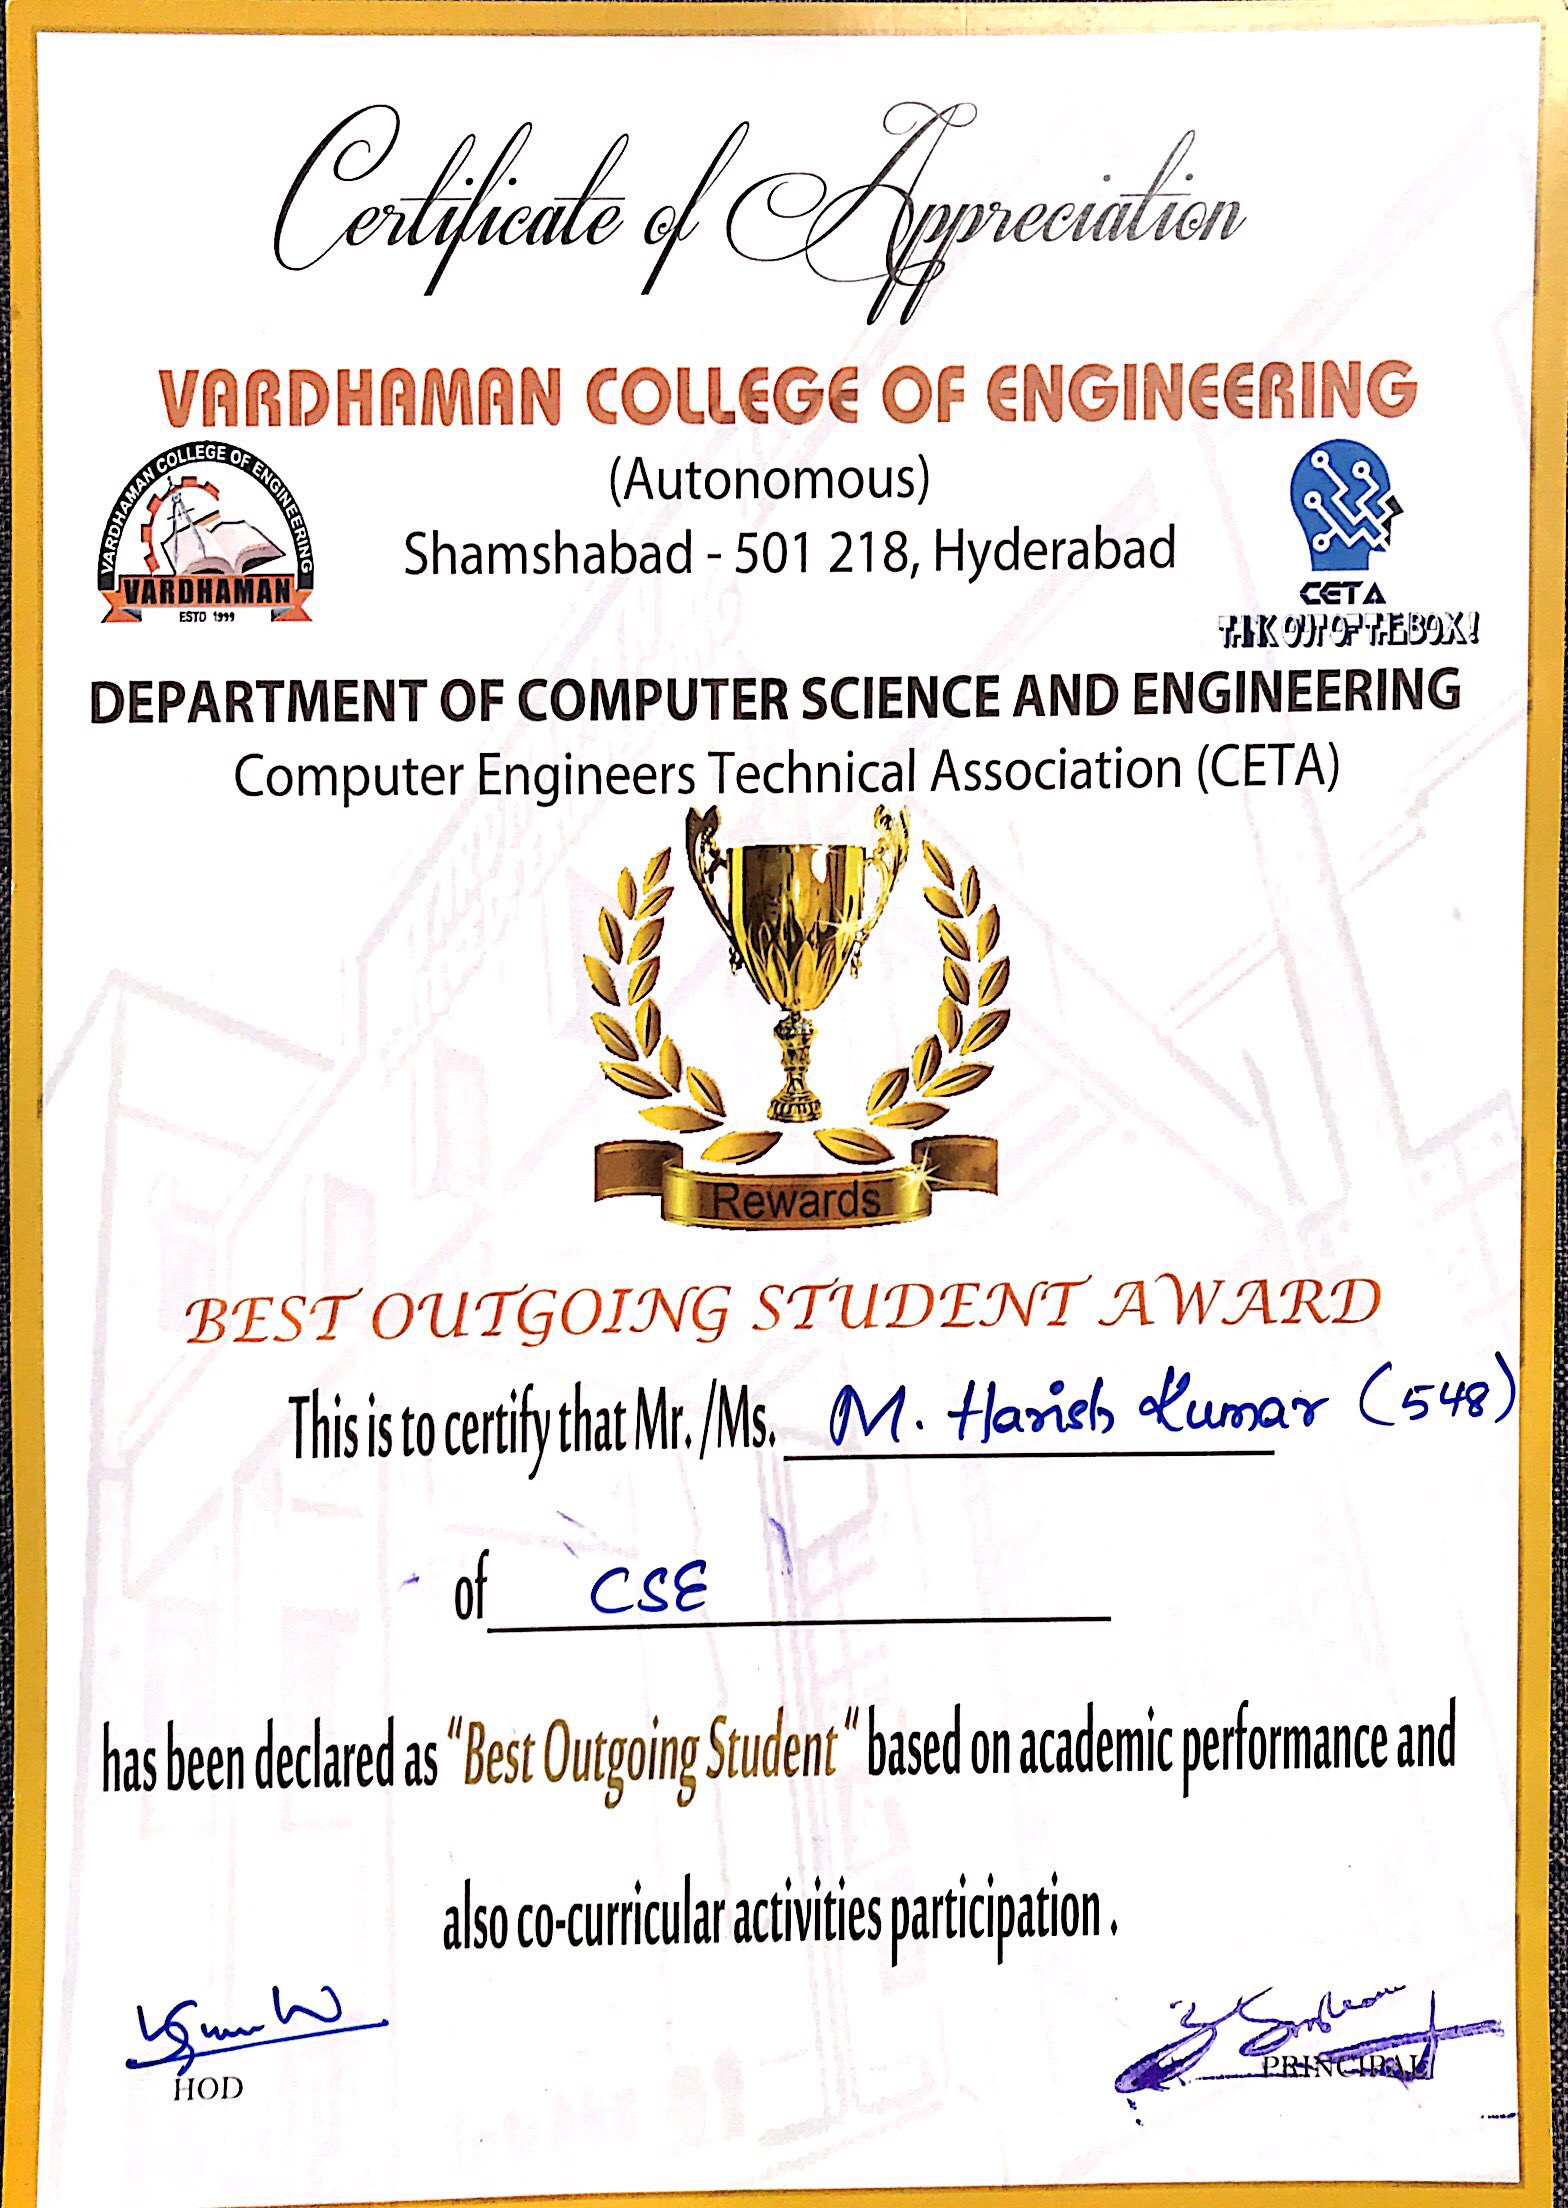 Certificate of Appreciation
VARDHAMAN COLLEGE OF ENGINEERING
(Autonomous)
Shamshabad - 501 218, Hyderabad
VARDHAMAN COLLEGE OF ENGINEERING
VARDHAMAN
ESTD 1999
CETA
THINK OUT OF THE BOX!
DEPARTMENT OF COMPUTER SCIENCE AND ENGINEERING
Computer Engineers Technical Association (CETA)
Rewards
BEST OUTGOING STUDENT AWARD
This is to certify that Mr. /Ms. M. Harish Kumar (548)
of CSE
has been declared as "Best Outgoing Student" based on academic performance and
also co-curricular activities participation .
HOD
PRINCIPAL